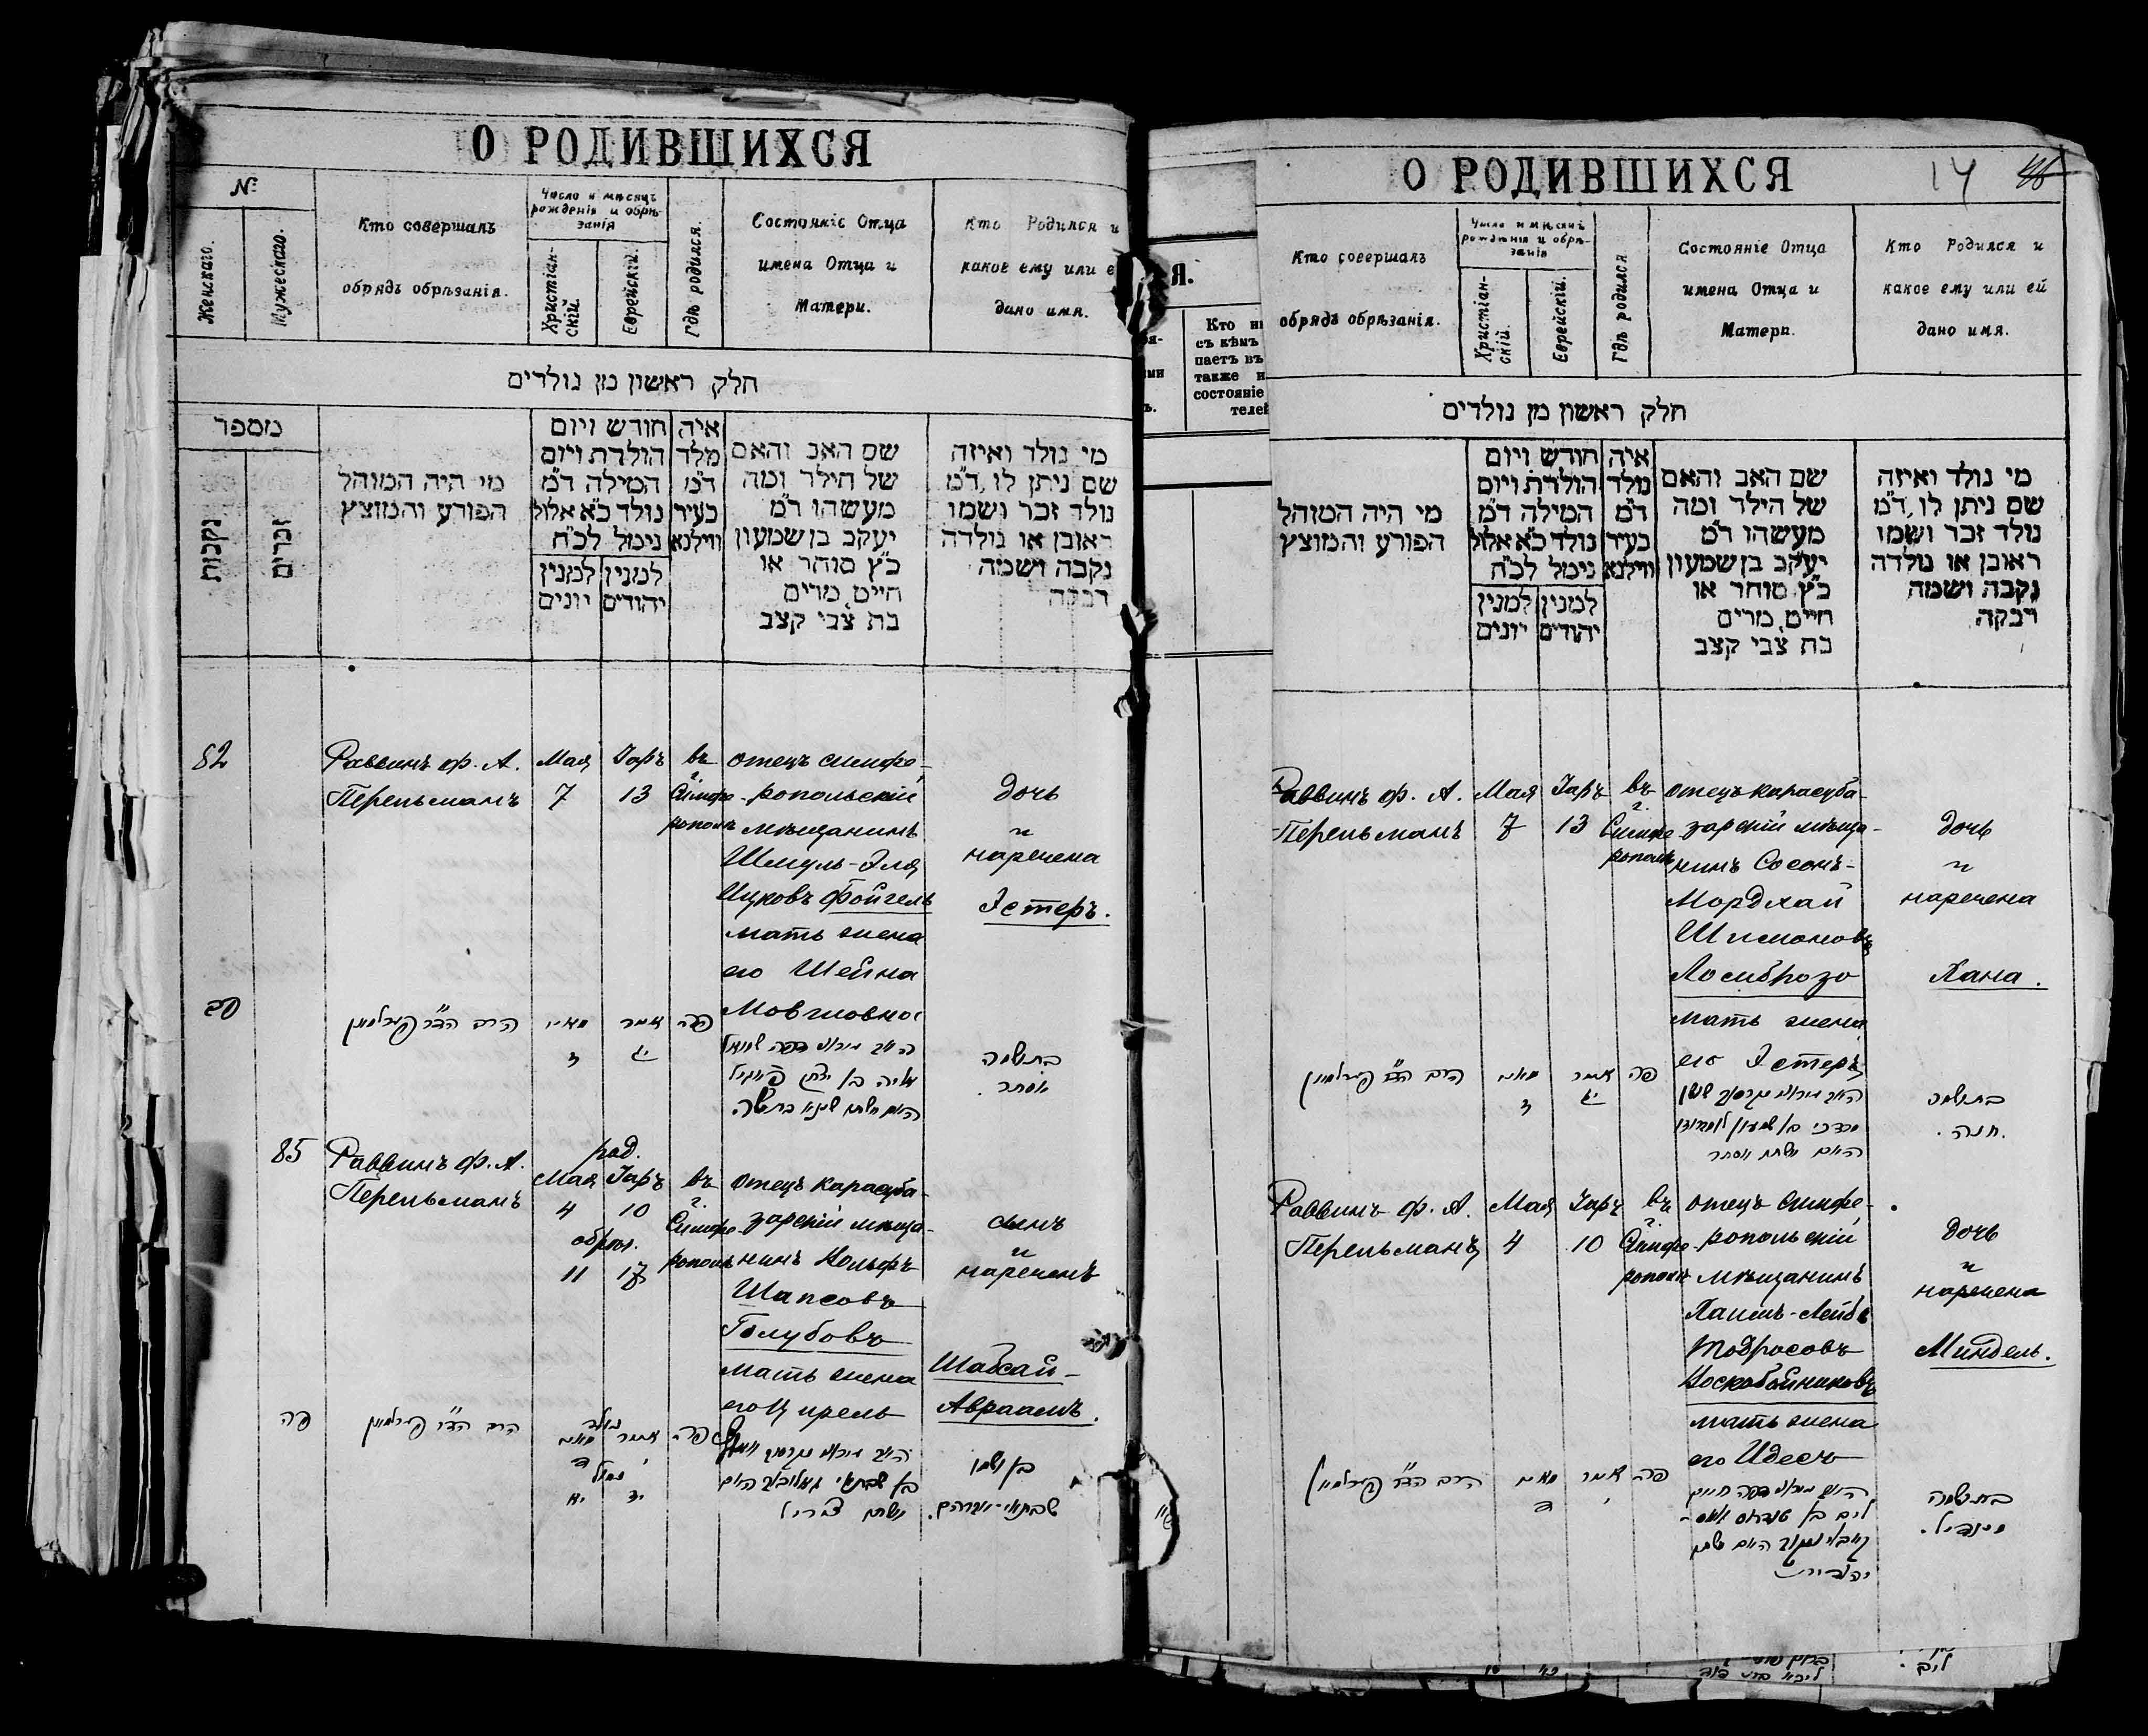 О РОДИВШИХСЯ
№
Женскаго.
Мужескаго.
Кто совершалъ
обрядъ обрѣзанія.
Число и мѣсяцъ
рожденія и обрѣ-
занія
Христіан-
скій.
Еврейскій.
Гдѣ родился.
Состояніе Отца
имена Отца и
Матери.
Кто Родился и
какое ему или
дано имя.
חלק ראשון מן נולדים
מספר
נקבות
זכרים
מי היה המוהל
הפורע והמוצץ
חודש ויום
הולדת ויום
המילה ד״מ
נולד כ״א אלול
נימל לכ״ח
למנין
יונים
למנין
יהודים
איה
מלד
ד״מ
בעיר
ווילנא
שם האב והאם
של הילד ומה
מעשהו ד״מ
יעקב בן שמעון
כ״ץ סוחר או
חייט, מרים
בת צבי קצב
מי נולד ואיזה
שם ניתן לו, ד״מ
נולד זכר ושמו
ראובן או נולדה
נקבה ושמה
רבקה
82
Раввинъ Ф. А.
Перельманъ
Мая
7
Іаръ
13
въ
г.
Симфе-
рополѣ
отецъ симфе-
ропольскій
мѣщанинъ
Шмуль-Эля
Ицковъ Фойгель
мать жена
его Шейна
Мовшовна
дочь
и
наречена
Эстеръ.
פב
הרב הד״ר פערלמאן
מאי
ז
אייר
יג
פה
אליה בן יצחק פייגיל
בת ושמה
אסתר.
85
Раввинъ Ф. А.
Перельманъ
род.
Мая
4
Іаръ
10
обрѣз.
11
17
въ
г.
Симфе-
рополѣ
отецъ карасуба-
зарскій мѣща-
нинъ Вольфъ
Шапсовъ
Голубовъ
мать жена
его Цирель
сынъ
и
нареченъ
Шабсай-
Авраамъ.
פה
הרב הד״ר פערלמאן
נולד
מאי
ד
אייר
י
נמול
יא
יז
פה
האם ושמה צירל
בן ושמו
שבתאי-אברהם.
Я.
Кто
съ кѣмъ
паетъ въ
также
состояніе
О РОДИВШИХСЯ
14
Кто совершалъ
обрядъ обрѣзанія.
Число и мѣсяцъ
рожденія и обрѣ-
занія
Христіан-
скій.
Еврейскій.
Гдѣ родился.
Состояніе Отца
имена Отца и
Матери.
Кто Родился и
какое ему или ей
дано имя.
חלק ראשון מן נולדים
מי היה המוהל
הפורע והמוצץ
חודש ויום
הולדת ויום
המילה ד״מ
נולד כ״א אלול
נימל לכ״ח
למנין
יונים
למנין
יהודים
איה
מלד
ד״מ
בעיר
ווילנא
שם האב והאם
של הילד ומה
מעשהו ד״מ
יעקב בן שמעון
כ״ץ סוחר או
חייט, מרים
בת צבי קצב
מי נולד ואיזה
שם ניתן לו, ד״מ
נולד זכר ושמו
ראובן או נולדה
נקבה ושמה
רבקה
Раввинъ Ф. А.
Перельманъ
Мая
7
Іаръ
13
въ
г.
Симфе-
рополѣ
отецъ карасуба-
зарскій мѣща-
нинъ Сосонъ-
Мордхай
Шимоновъ
Ломброзо
мать жена
его Эстеръ
дочь
и
наречена
Хана.
הרב הד״ר פערלמאן
מאי
ז
אייר
יג
פה
מרדכי בן שמעון לאמברוזו
האם ושמה אסתר
בת ושמה
חנה.
Раввинъ Ф. А.
Перельманъ
Мая
4
Іаръ
10
въ
г.
Симфе-
рополѣ
отецъ симфе-
ропольскій
мѣщанинъ
Хаимъ-Лейбъ
Тодросовъ
Воскобойниковъ
мать жена
его Идесъ
дочь
и
наречена
Миндель.
הרב הד״ר פערלמאן
מאי
ד
אייר
י
פה
בת ושמה
מינדיל.